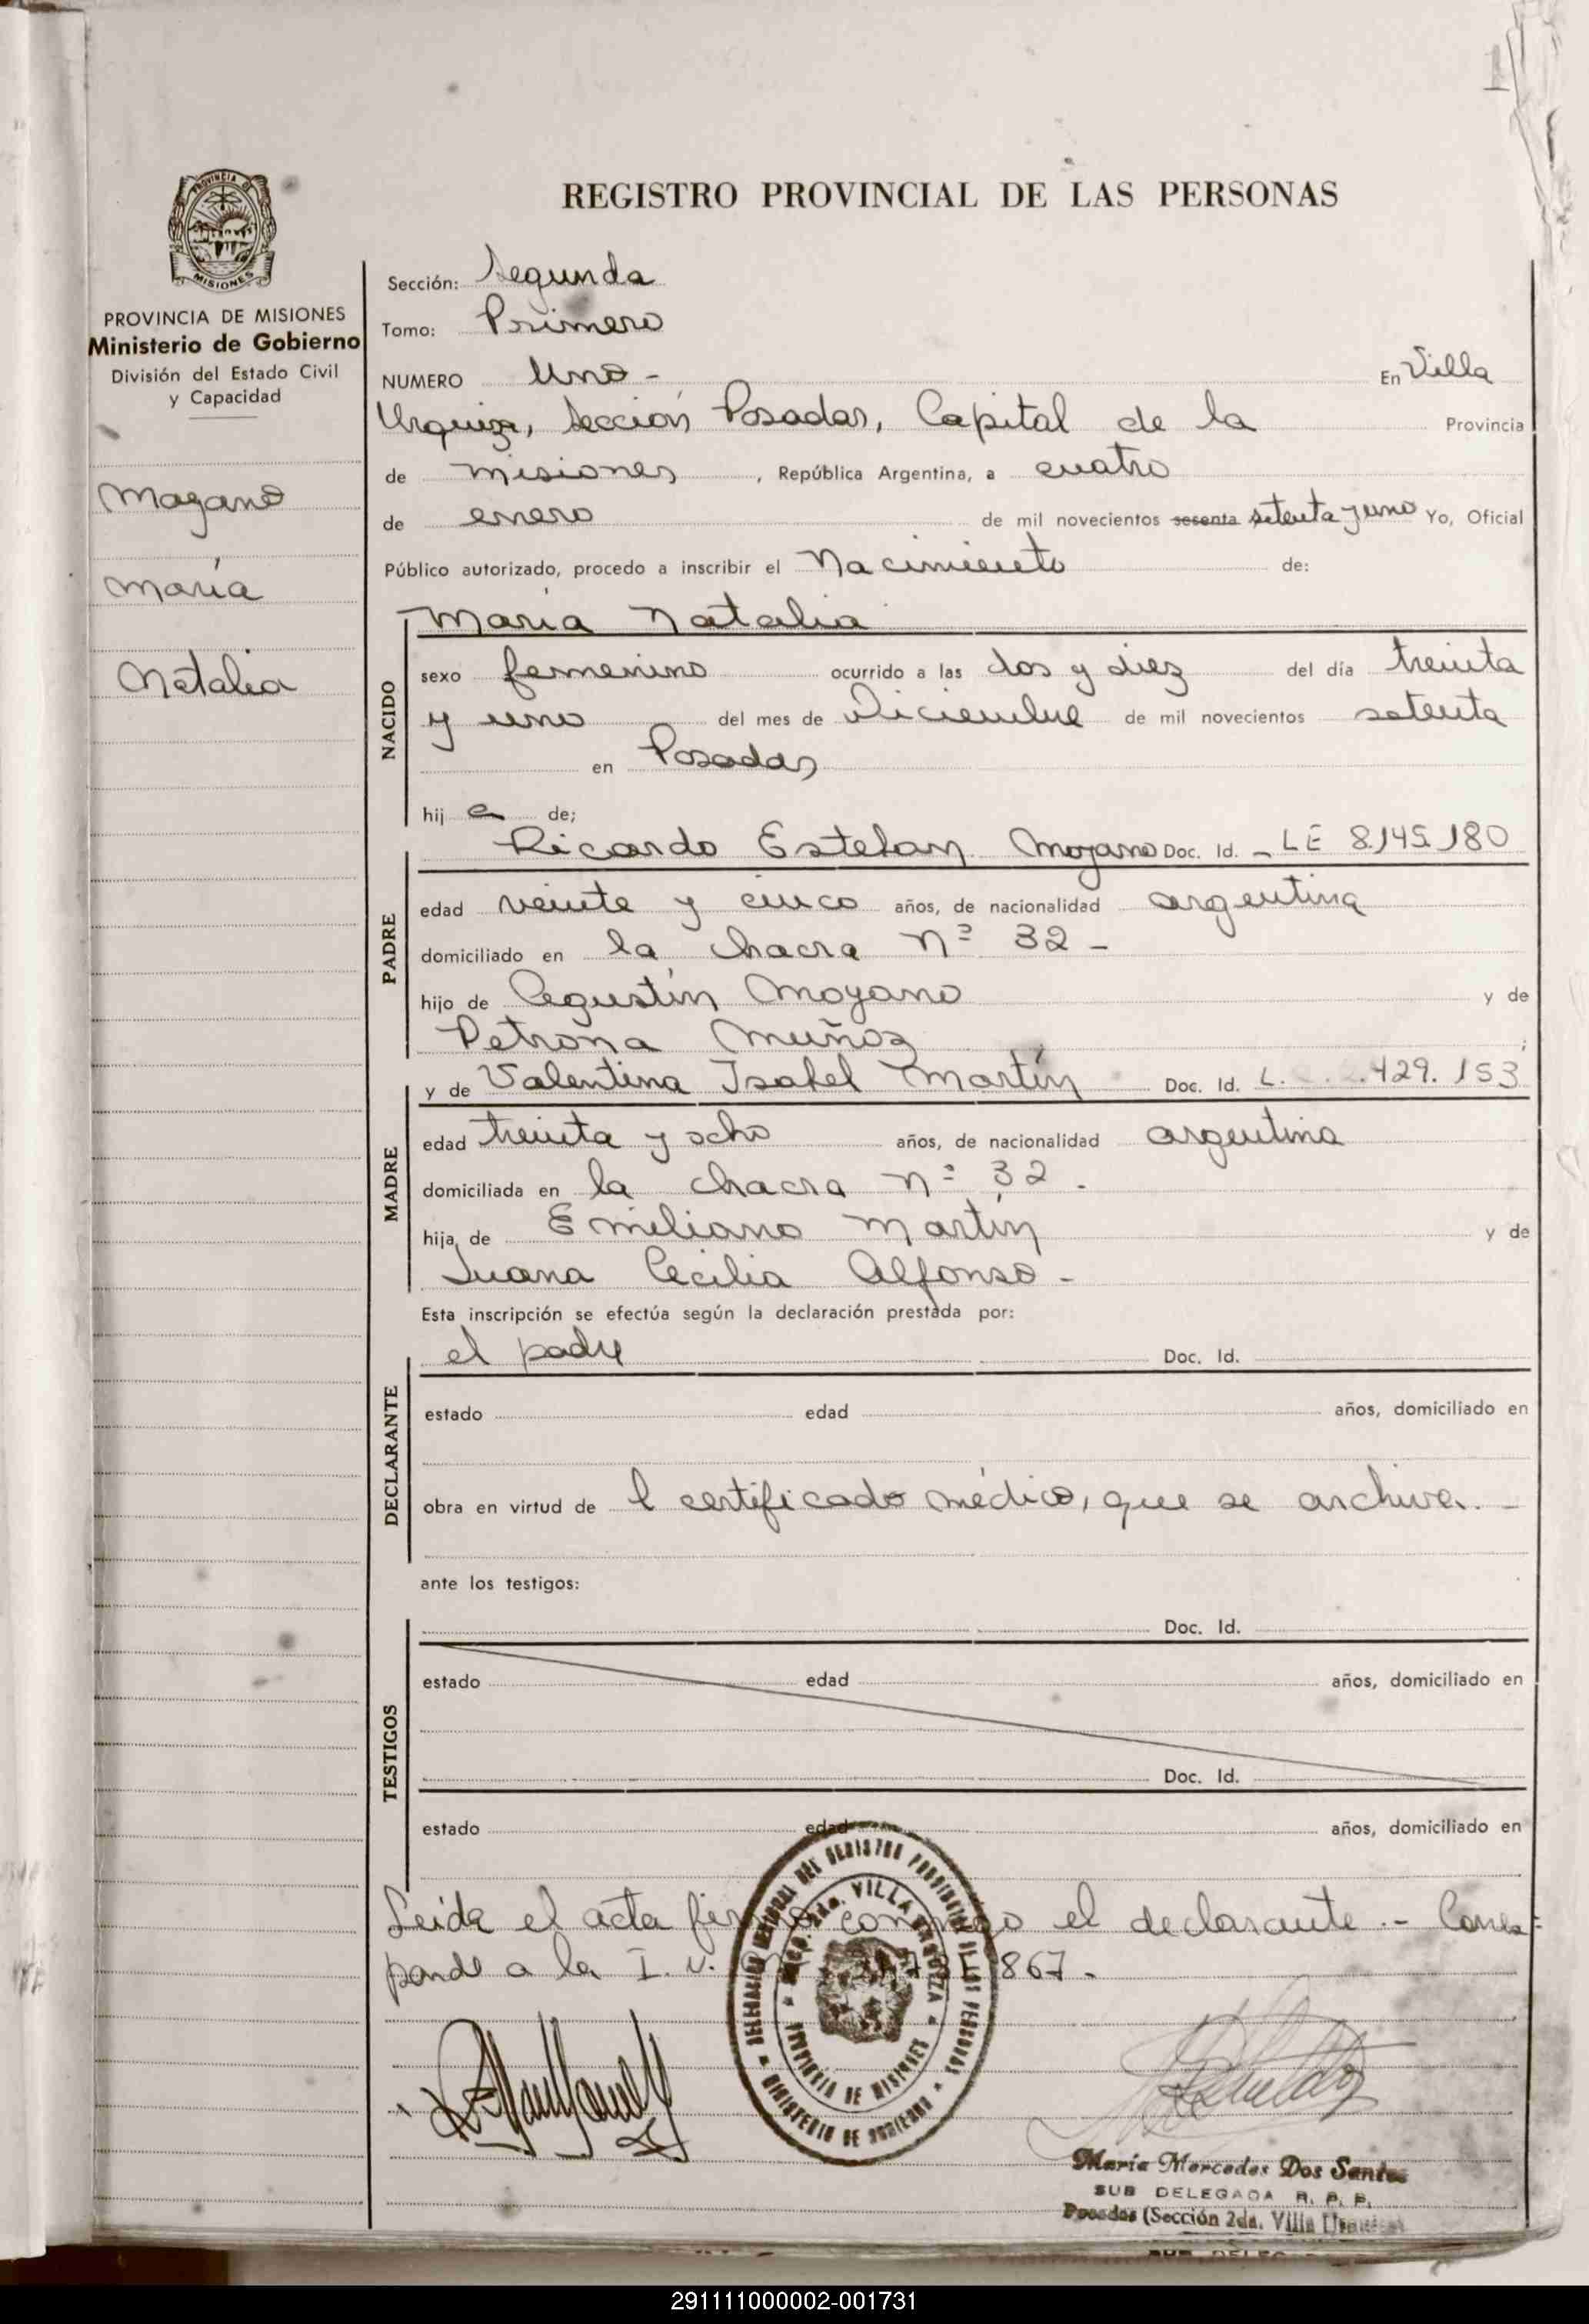 REGISTRO PROVINCIAL DE LAS PERSONAS
PROVINCIA DE
MISIONES
PROVINCIA DE MISIONES
Ministerio de Gobierno
División del Estado Civil
y Capacidad
Moyano
María
Natalia
Sección: Segunda
Tomo: Primero
NUMERO Uno - En Villa
Urquiza, Sección Posadas, Capital de la Provincia
de Misiones, República Argentina, a cuatro
de enero de mil novecientos sesenta setenta y uno Yo, Oficial
Público autorizado, procedo a inscribir el Nacimiento de:
María Natalia
NACIDO
sexo femenino ocurrido a las dos y diez del día treinta
y uno del mes de Diciembre de mil novecientos setenta
en Posadas
hij a de;
Ricardo Esteban Moyano Doc. Id. - LE 8.145.180
PADRE
edad veinte y cinco años, de nacionalidad argentina
domiciliado en la chacra nº 32 -
hijo de Agustín Moyano y de
Petrona Muñoz ;
y de Valentina Isabel Martín Doc. Id. L. 429.153
MADRE
edad treinta y ocho años, de nacionalidad argentina
domiciliada en la chacra nº 32 -
hija de Emiliano Martín y de
Juana Cecilia Alfonso -
Esta inscripción se efectúa según la declaración prestada por:
el padre Doc. Id.
DECLARANTE
estado edad años, domiciliado en
obra en virtud de l certificado médico, que se archiva. -
ante los testigos:
Doc. Id.
TESTIGOS
estado edad años, domiciliado en
Doc. Id.
estado edad años, domiciliado en
Leída el acta firma conmigo el declarante. - Corres-
ponde a la I. N. 867 -
DELEGACION DEL REGISTRO PROVINCIAL DE LAS PERSONAS
2da. VILLA URQUIZA
PROVINCIA DE MISIONES
MINISTERIO DE GOBIERNO
María Mercedes Dos Santos
SUB DELEGADA R. P. P.
Posadas (Sección 2da. Villa Urquiza)
SUB DELEG
291111000002-001731